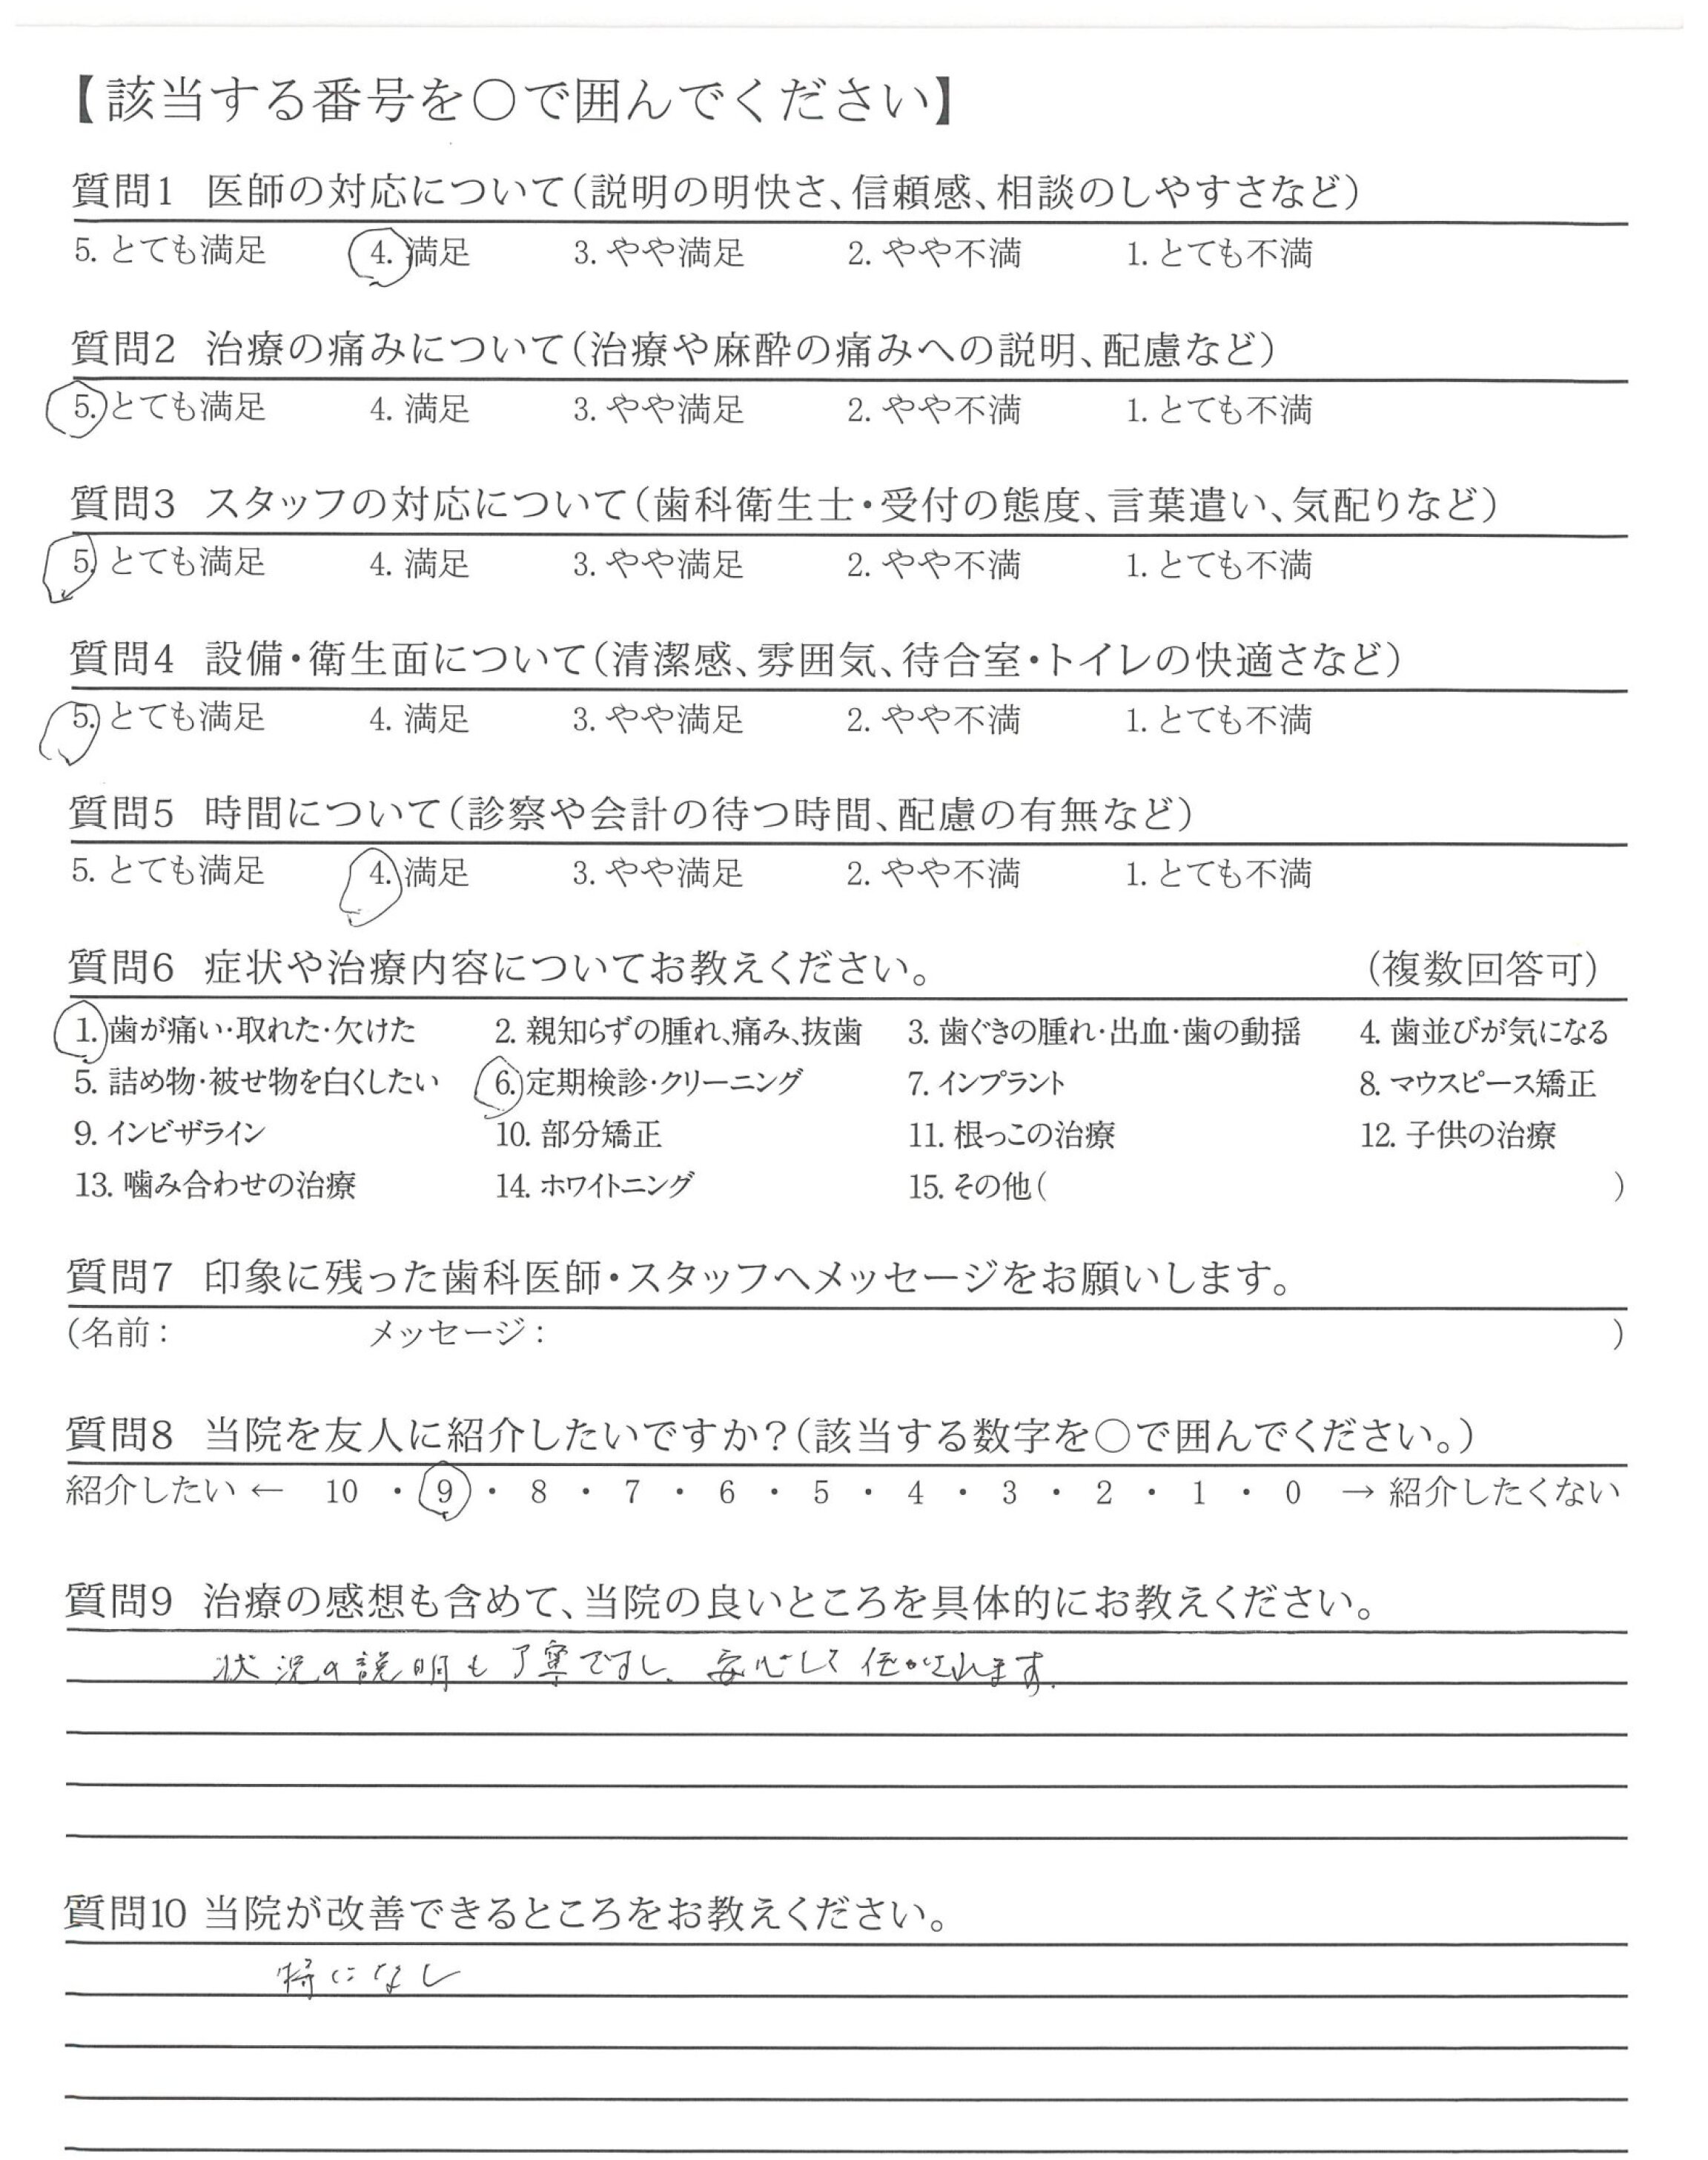 【該当する番号を○で囲んでください】
質問1 医師の対応について(説明の明快さ、信頼感、相談のしやすさなど)
5. とても満足 4. 満足 3. やや満足 2. やや不満 1. とても不満
質問2 治療の痛みについて(治療や麻酔の痛みへの説明、配慮など)
5. とても満足 4. 満足 3. やや満足 2. やや不満 1. とても不満
質問3 スタッフの対応について(歯科衛生士・受付の態度、言葉遣い、気配りなど)
5. とても満足 4. 満足 3. やや満足 2. やや不満 1. とても不満
質問4 設備・衛生面について(清潔感、雰囲気、待合室・トイレの快適さなど)
5. とても満足 4. 満足 3. やや満足 2. やや不満 1. とても不満
質問5 時間について(診察や会計の待つ時間、配慮の有無など)
5. とても満足 4. 満足 3. やや満足 2. やや不満 1. とても不満
質問6 症状や治療内容についてお教えください。 (複数回答可)
1. 歯が痛い・取れた・欠けた 2. 親知らずの腫れ、痛み、抜歯 3. 歯ぐきの腫れ・出血・歯の動揺 4. 歯並びが気になる
5. 詰め物・被せ物を白くしたい 6. 定期検診・クリーニング 7. インプラント 8. マウスピース矯正
9. インビザライン 10. 部分矯正 11. 根っこの治療 12. 子供の治療
13. 噛み合わせの治療 14. ホワイトニング 15. その他( )
質問7 印象に残った歯科医師・スタッフへメッセージをお願いします。
(名前: メッセージ: )
質問8 当院を友人に紹介したいですか?(該当する数字を○で囲んでください。)
紹介したい ← 10 ・ 9 ・ 8 ・ 7 ・ 6 ・ 5 ・ 4 ・ 3 ・ 2 ・ 1 ・ 0 → 紹介したくない
質問9 治療の感想も含めて、当院の良いところを具体的にお教えください。
状況の説明も丁寧ですし、安心して任かせれます。
質問10 当院が改善できるところをお教えください。
特になし